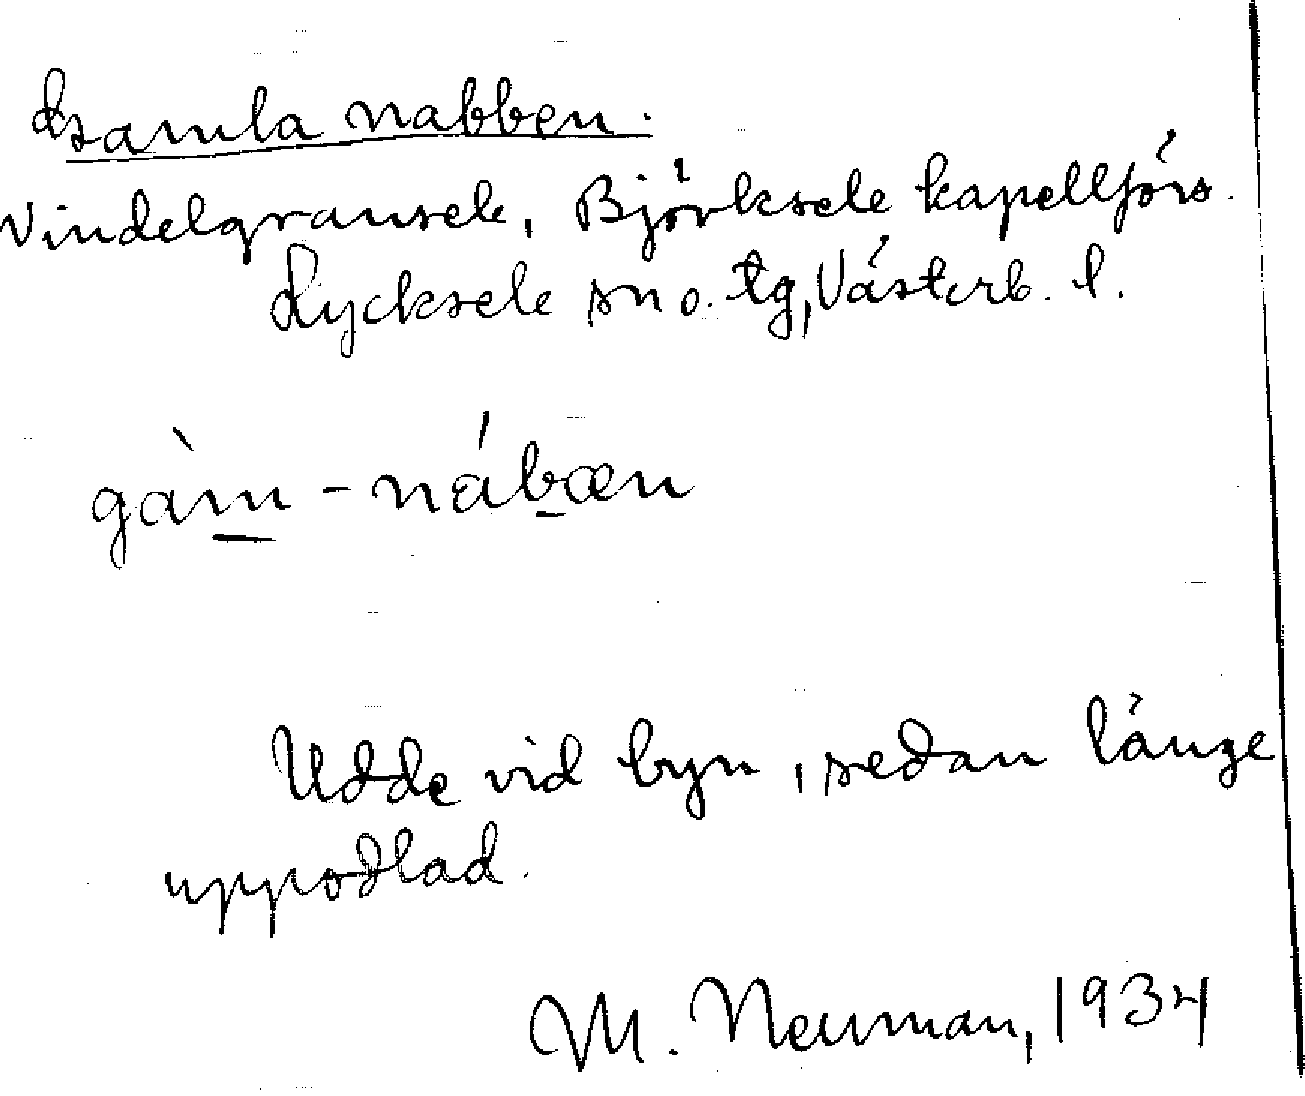 Gamla nabben.
Vindelgransele, Björksele kapellförs.
Lycksele sn o. tg, Västerb. l.
gàm - nábæn
Udde vid byn, sedan länge
uppodlad.
M. Neuman, 1934